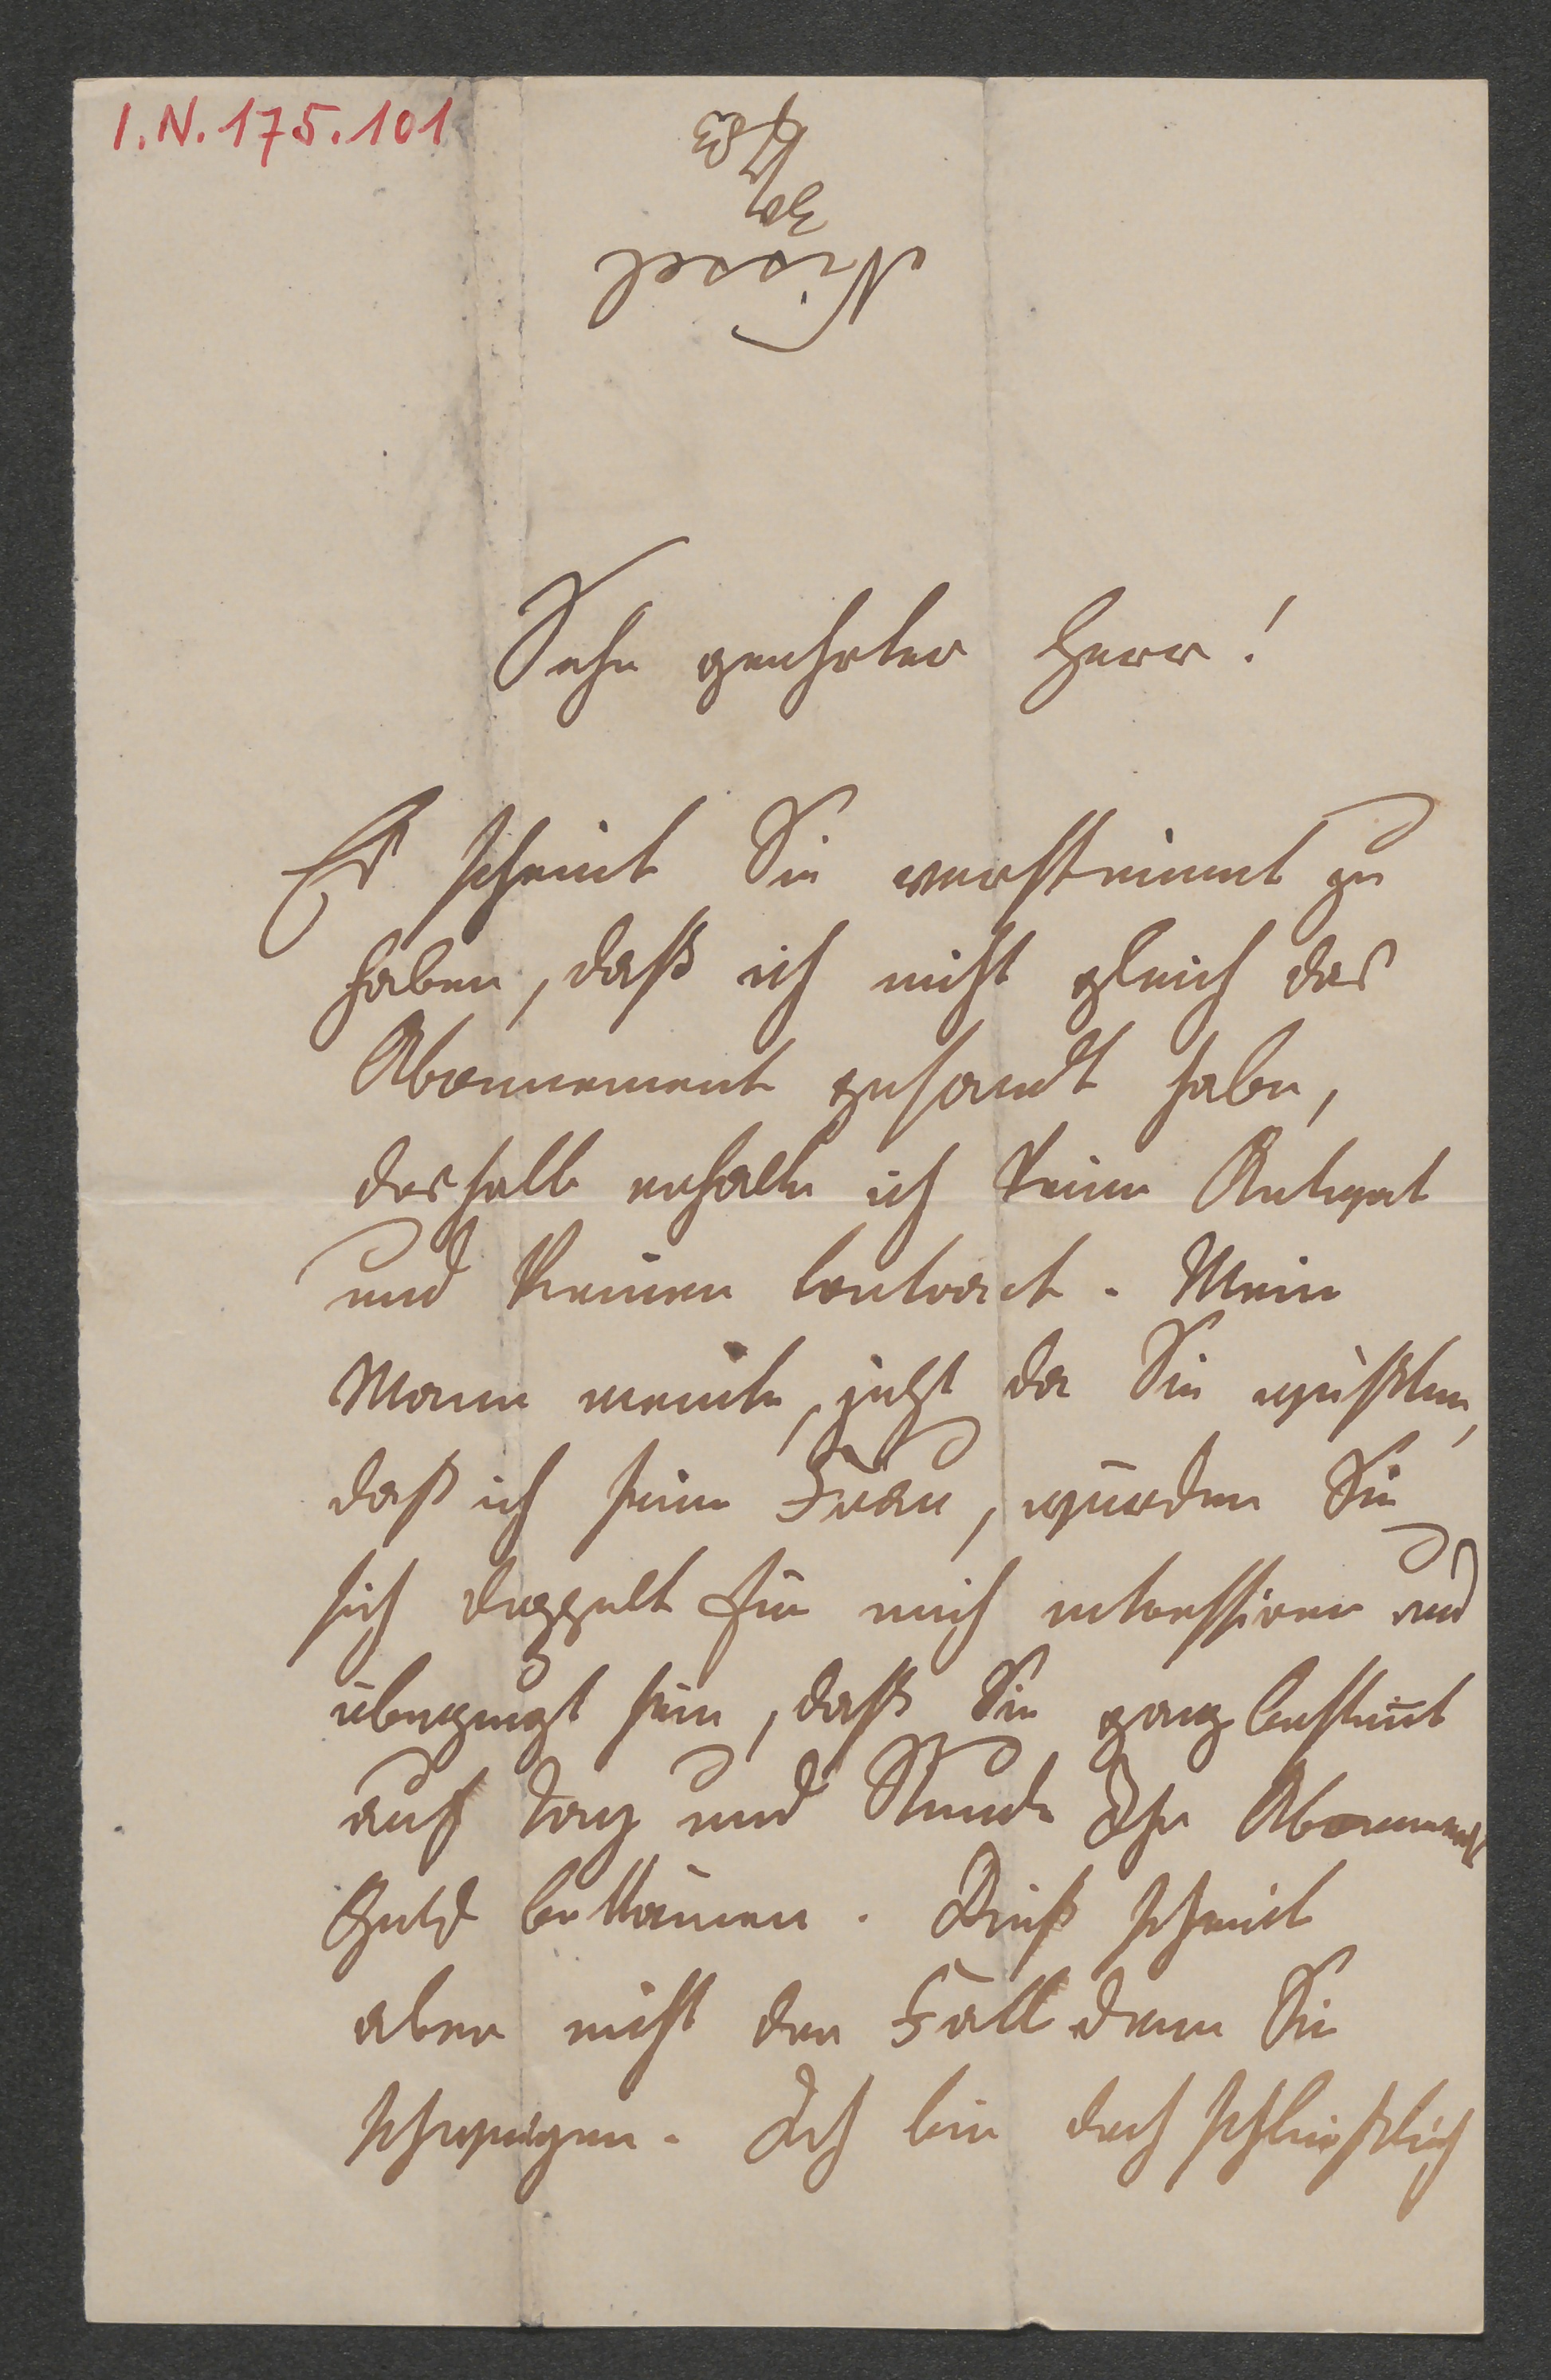 I.N. 175.101
Nissel
30/7 83
Sehr geehrter Herr!
Es scheint Sie verstimmt zu
haben, daß ich nicht gleich das
Abonnement gesandt habe,
deshalb erhalte ich keine Antwort
und keinen Contract. Mein
Mann meinte, jetzt da Sie wüßten,
daß ich seine Frau, würden Sie
sich doppelt für mich interessiren und
überzeugt sein, daß Sie ganz bestimt
auf Tag und Stunde Ihr Abonnements
Geld bekämen. Dieß scheint
aber nicht der Fall denn Sie
schweigen. Ich bin doch schließlich